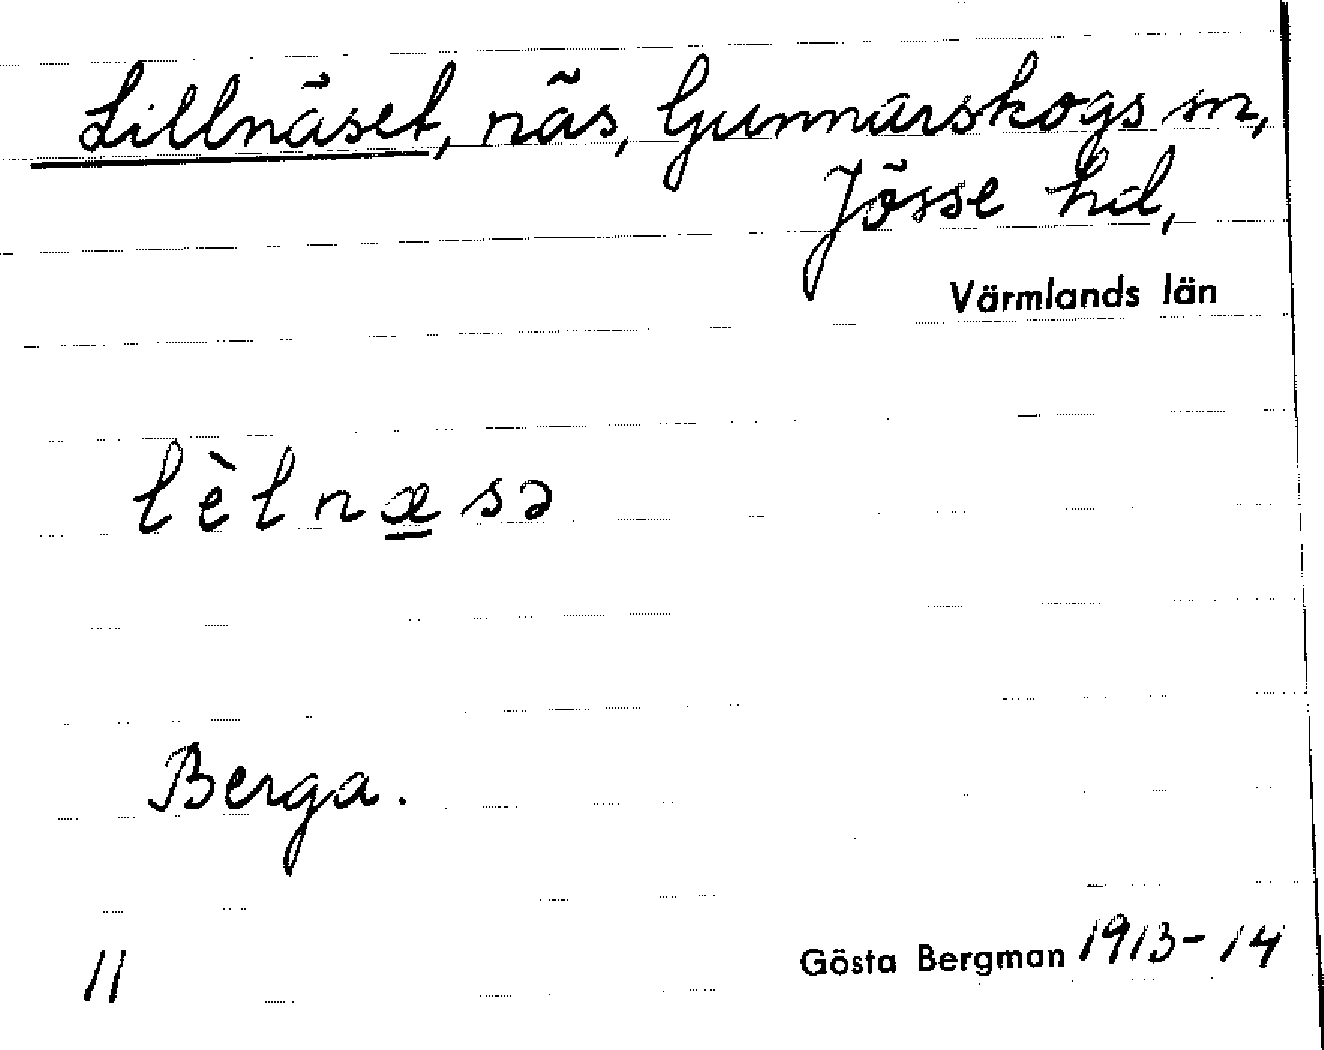 Lillnäset, näs, Gunnarskogs sn,
Jösse hd,
Värmlands län
lèlnæsə
Berga.
11
Gösta Bergman 1913-14